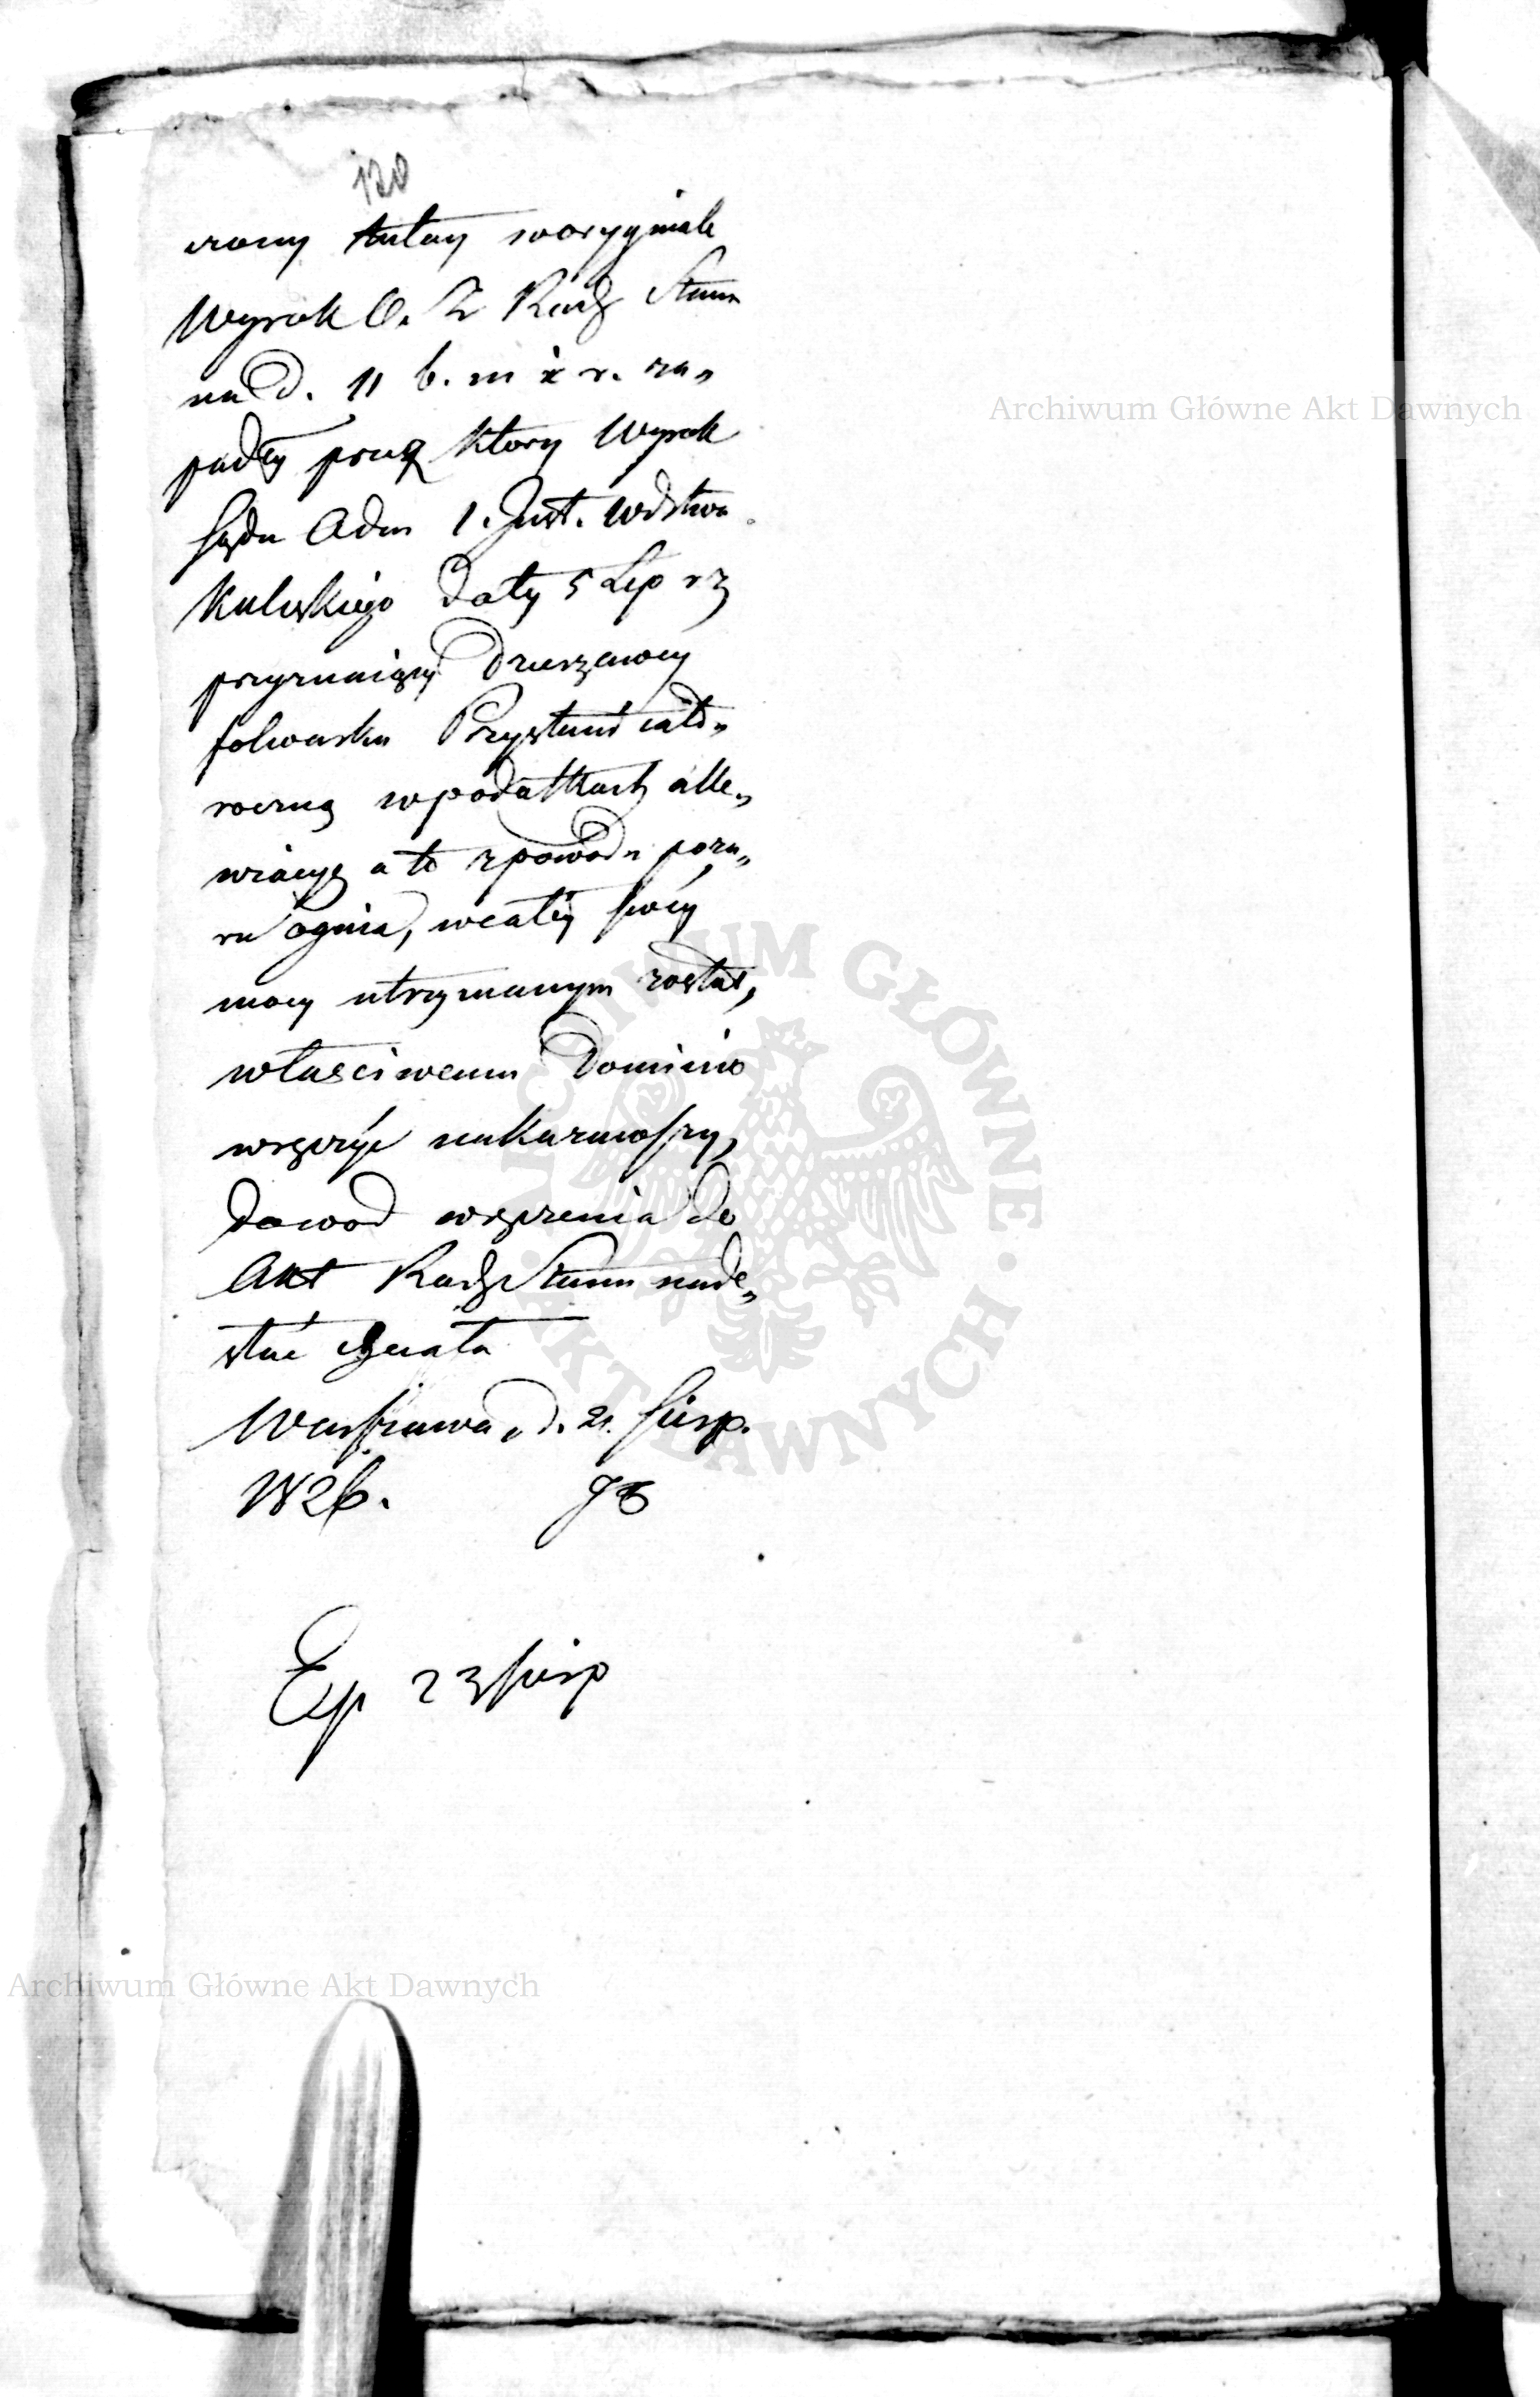 120
czony tutay w oryginale
Wyrok O. Z Rady Stanu
na d. 11 b. m i r. za„
padły przez ktory Wyrok
Sądu Adm 1. Inst. Wdztwa
Kaliskiego daty 5 Lip rz
przyznaiący Dzierzawcy
folwarku Przystań cało„
roczną w podatkach alle„
wiacyę a to z powodu poza„
ru ognia, w całey swey
mocy utrzymanym został,
własciwemu Dominio
wręczyć nakazawszy,
dowod wręczenia do
Akt Rady Stanu nade„
słać
Warszawa d. 21. Sierp.
1826.
Ex 23 sierp
Archiwum Główne Akt Dawnych
Archiwum Główne Akt Dawnych
ARCHIWUM GŁÓWNE · AKT DAWNYCH ·